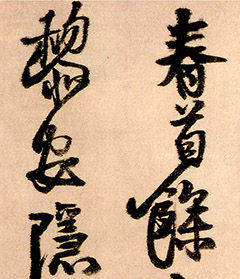 春首餘
黎安隱